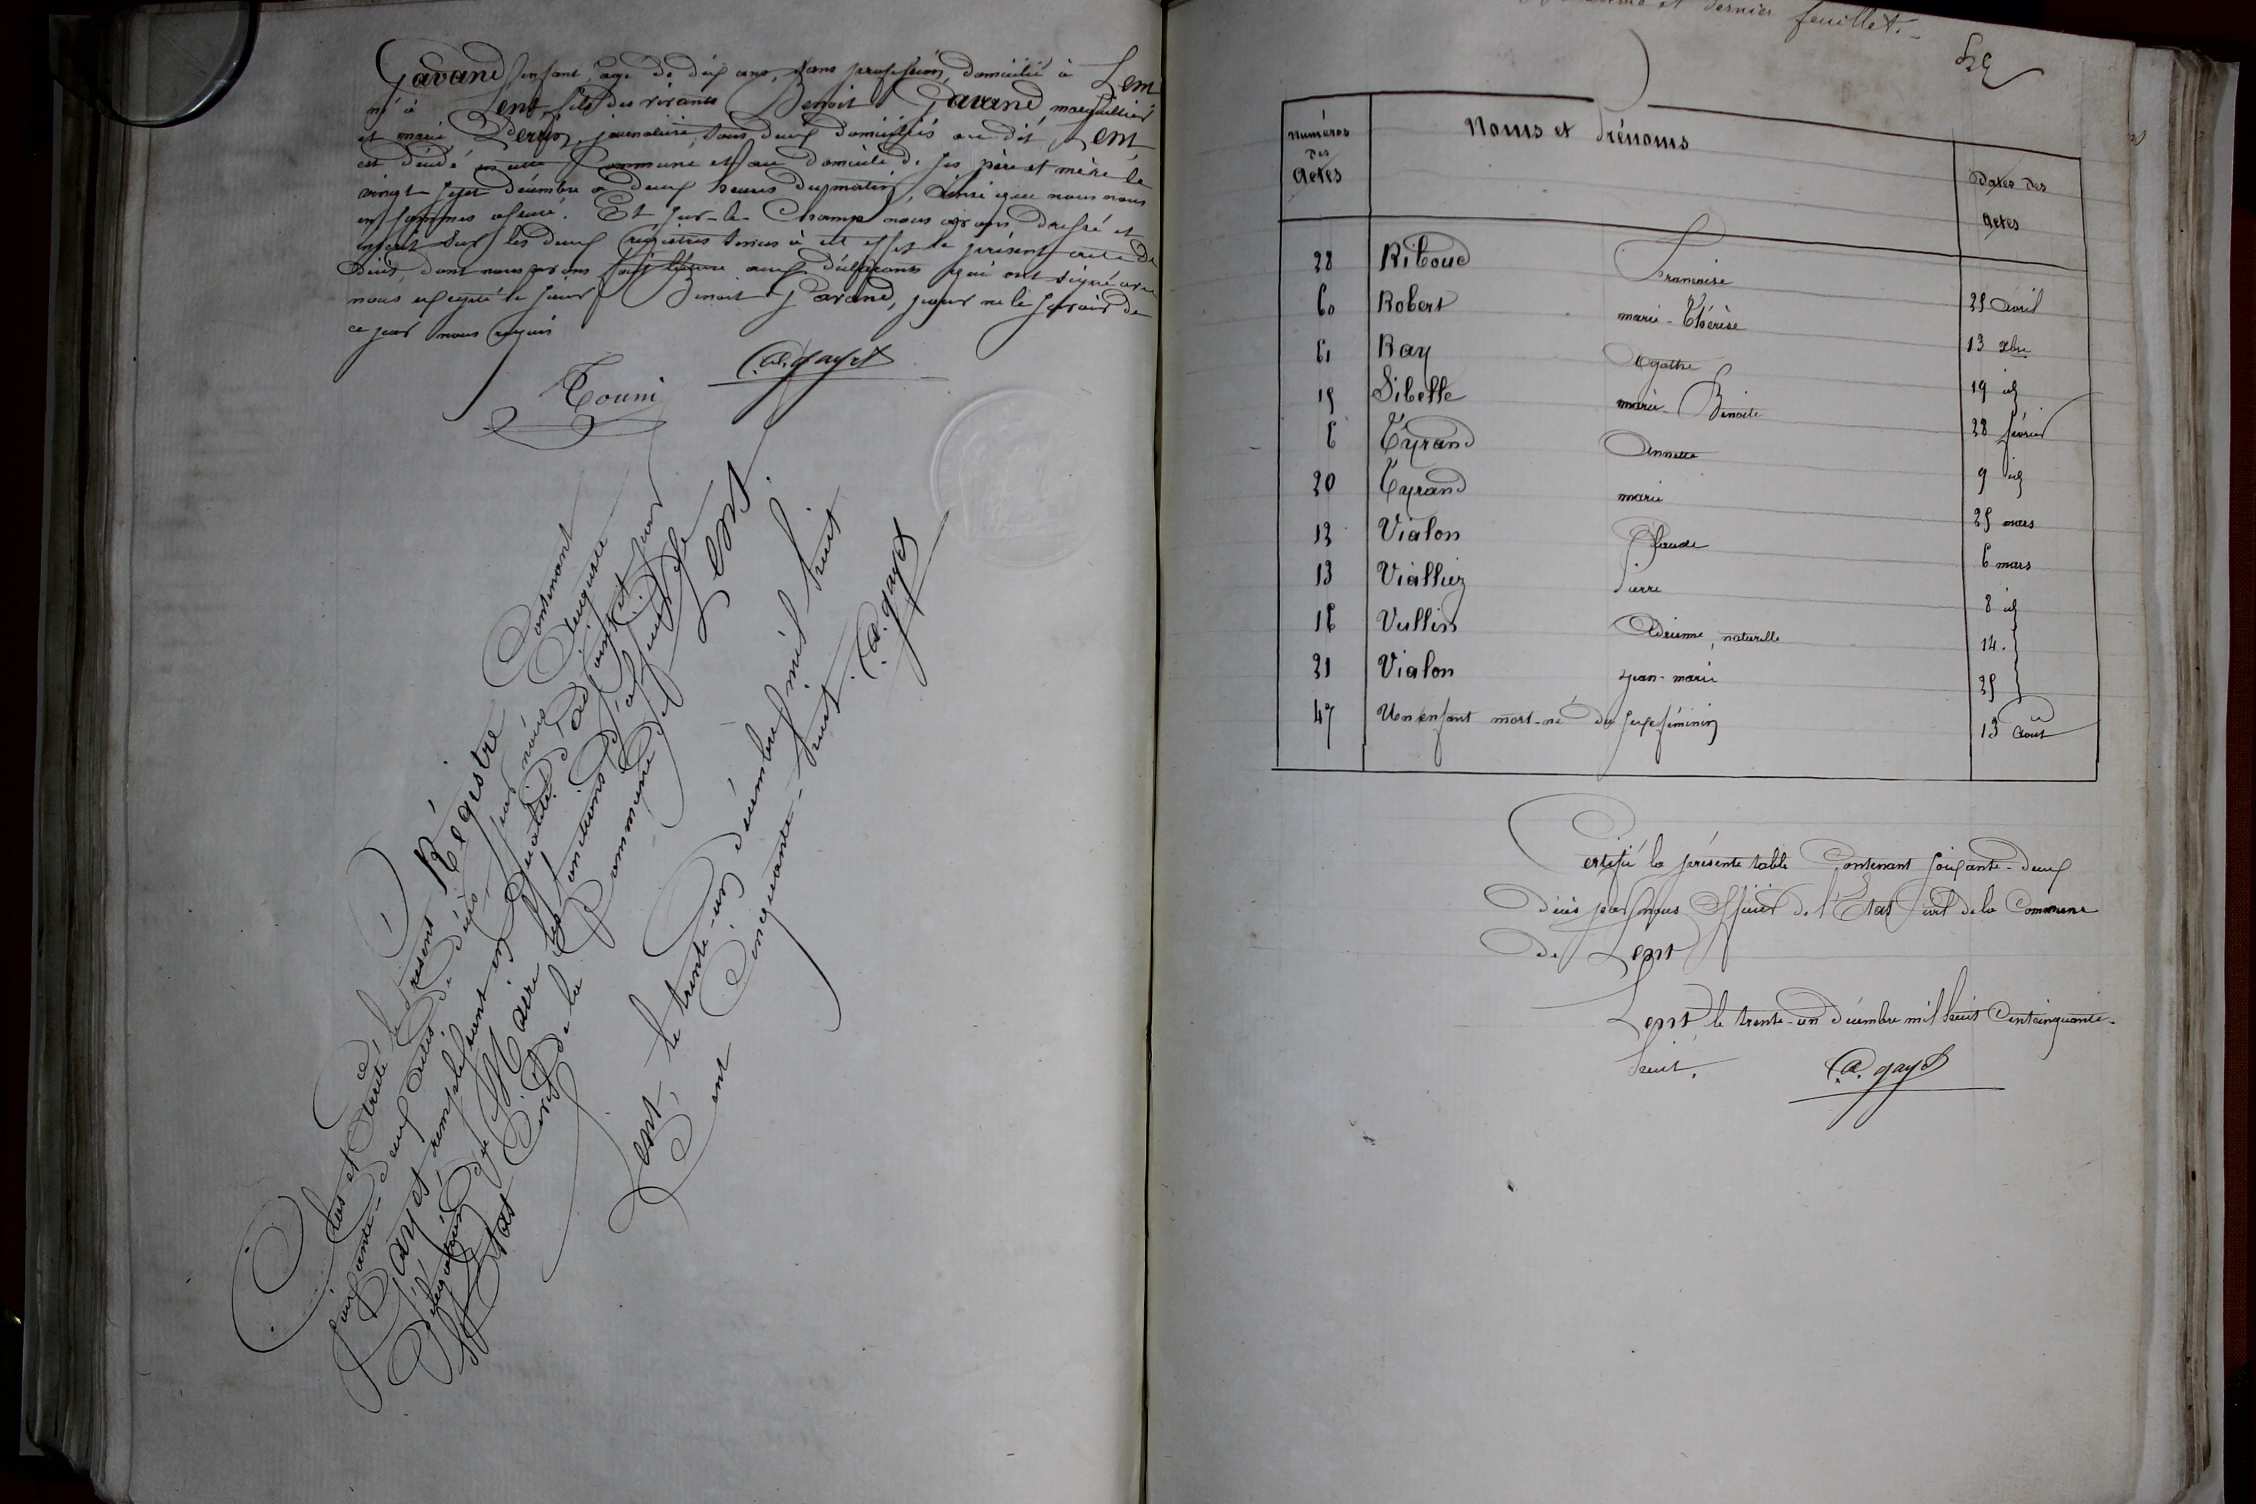 Gavand enfant, agé de dix ans, sans profession, domicilié à Lent
né à Lent, fils des vivants Benoit Gavand, marguillier
et marie journalière, tous deux domiciliés au dit Lent
est décédé en cette Commune et au domicile de ses père et mère le
vingt sept décembre à deux heures du matin, ainsi que nous nous
en sommes assuré. Et sur-le-Champ nous avons dressé et
inscrit sur les deux régistres tenus à cet effet le présent acte de
décès, dont nous avons fait lecture aux déclarants qui ont signé avec
nous excepté le sieur Benoit Gavand, pour ne le savoir de
ce par nous requis
a. gayet
Clos et arrêté, le présent Régistre Contenant
soixante-deux actes de décès par nous
Gayet remplissant en qualité d'adjoint et par
délégation du Maire les fonctions d'officier de
l'Etat Civil de la Commune de Lent
Lent, le trente-un décembre mil huit
cent Cinquante-huit. a. gayet
et dernier feuillet.
Numéros des Actes Noms et Prénoms Dates des Actes
28 Riboud Francoise 25 avril
60 Robert marie-Thérèse 13 xbre
61 Ray Agathe 19 id
15 Sibelle marie-Benoite 28 février
6 Tyrand Annette 9 id
20 Tyrand marie 25 mars
12 Vialon Claude 6 mars
13 Vialliez Pierre 8 id
16 Vullin naturelle 14.
21 Vialon jean-marie 25
47 Un enfant mort-né du sexe féminin 13 Août
Certifié la présente table Contenant soixante-deux
décès par nous Officier de l'Etat Civil de la Commune
de Lent
Lent le trente-un décembre mil huit Cent cinquante-
huit. a. gayet